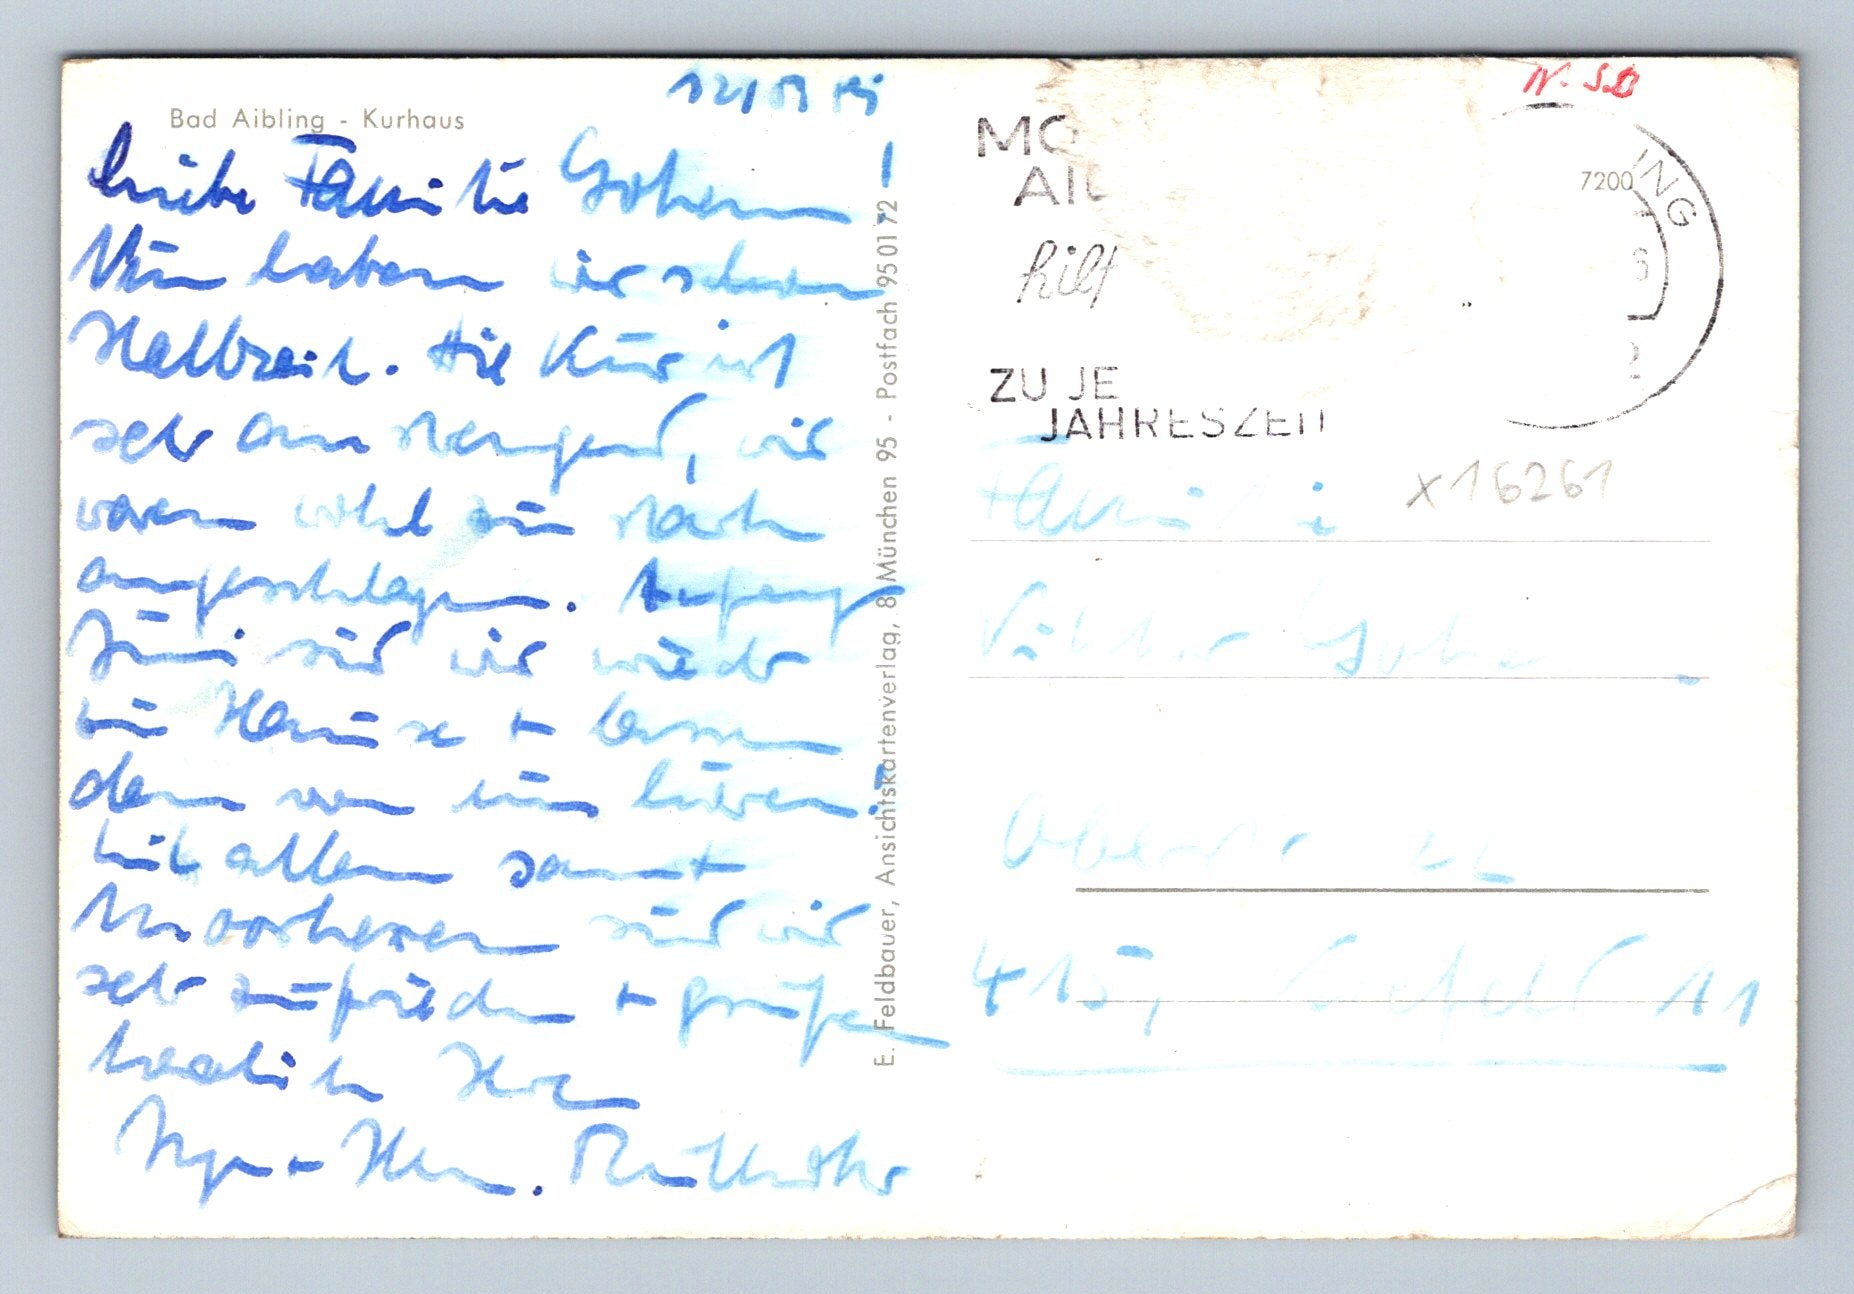 Bad Aibling - Kurhaus
Liebe Familie Gohen!
Nun haben wir schon
Halbzeit. Die Kur ist
sehr anstrengend, wir
waren wohl zu stark
angeschlagen. Anfang
Juni sind wir wieder
zu Hause + lassen
dann von uns hören.
Mit allem samt
Moorhexen sind wir
sehr zufrieden + grüßen
herzlich Ihre
E. Feldbauer, Ansichtskartenverlag, 8 München 95 - Postfach 950172
MO
AIL
hilft
ZU JE
JAHRESZEIT
7200
ING
N.
x 16261
Familie
Viktor
415, Krefeld 11